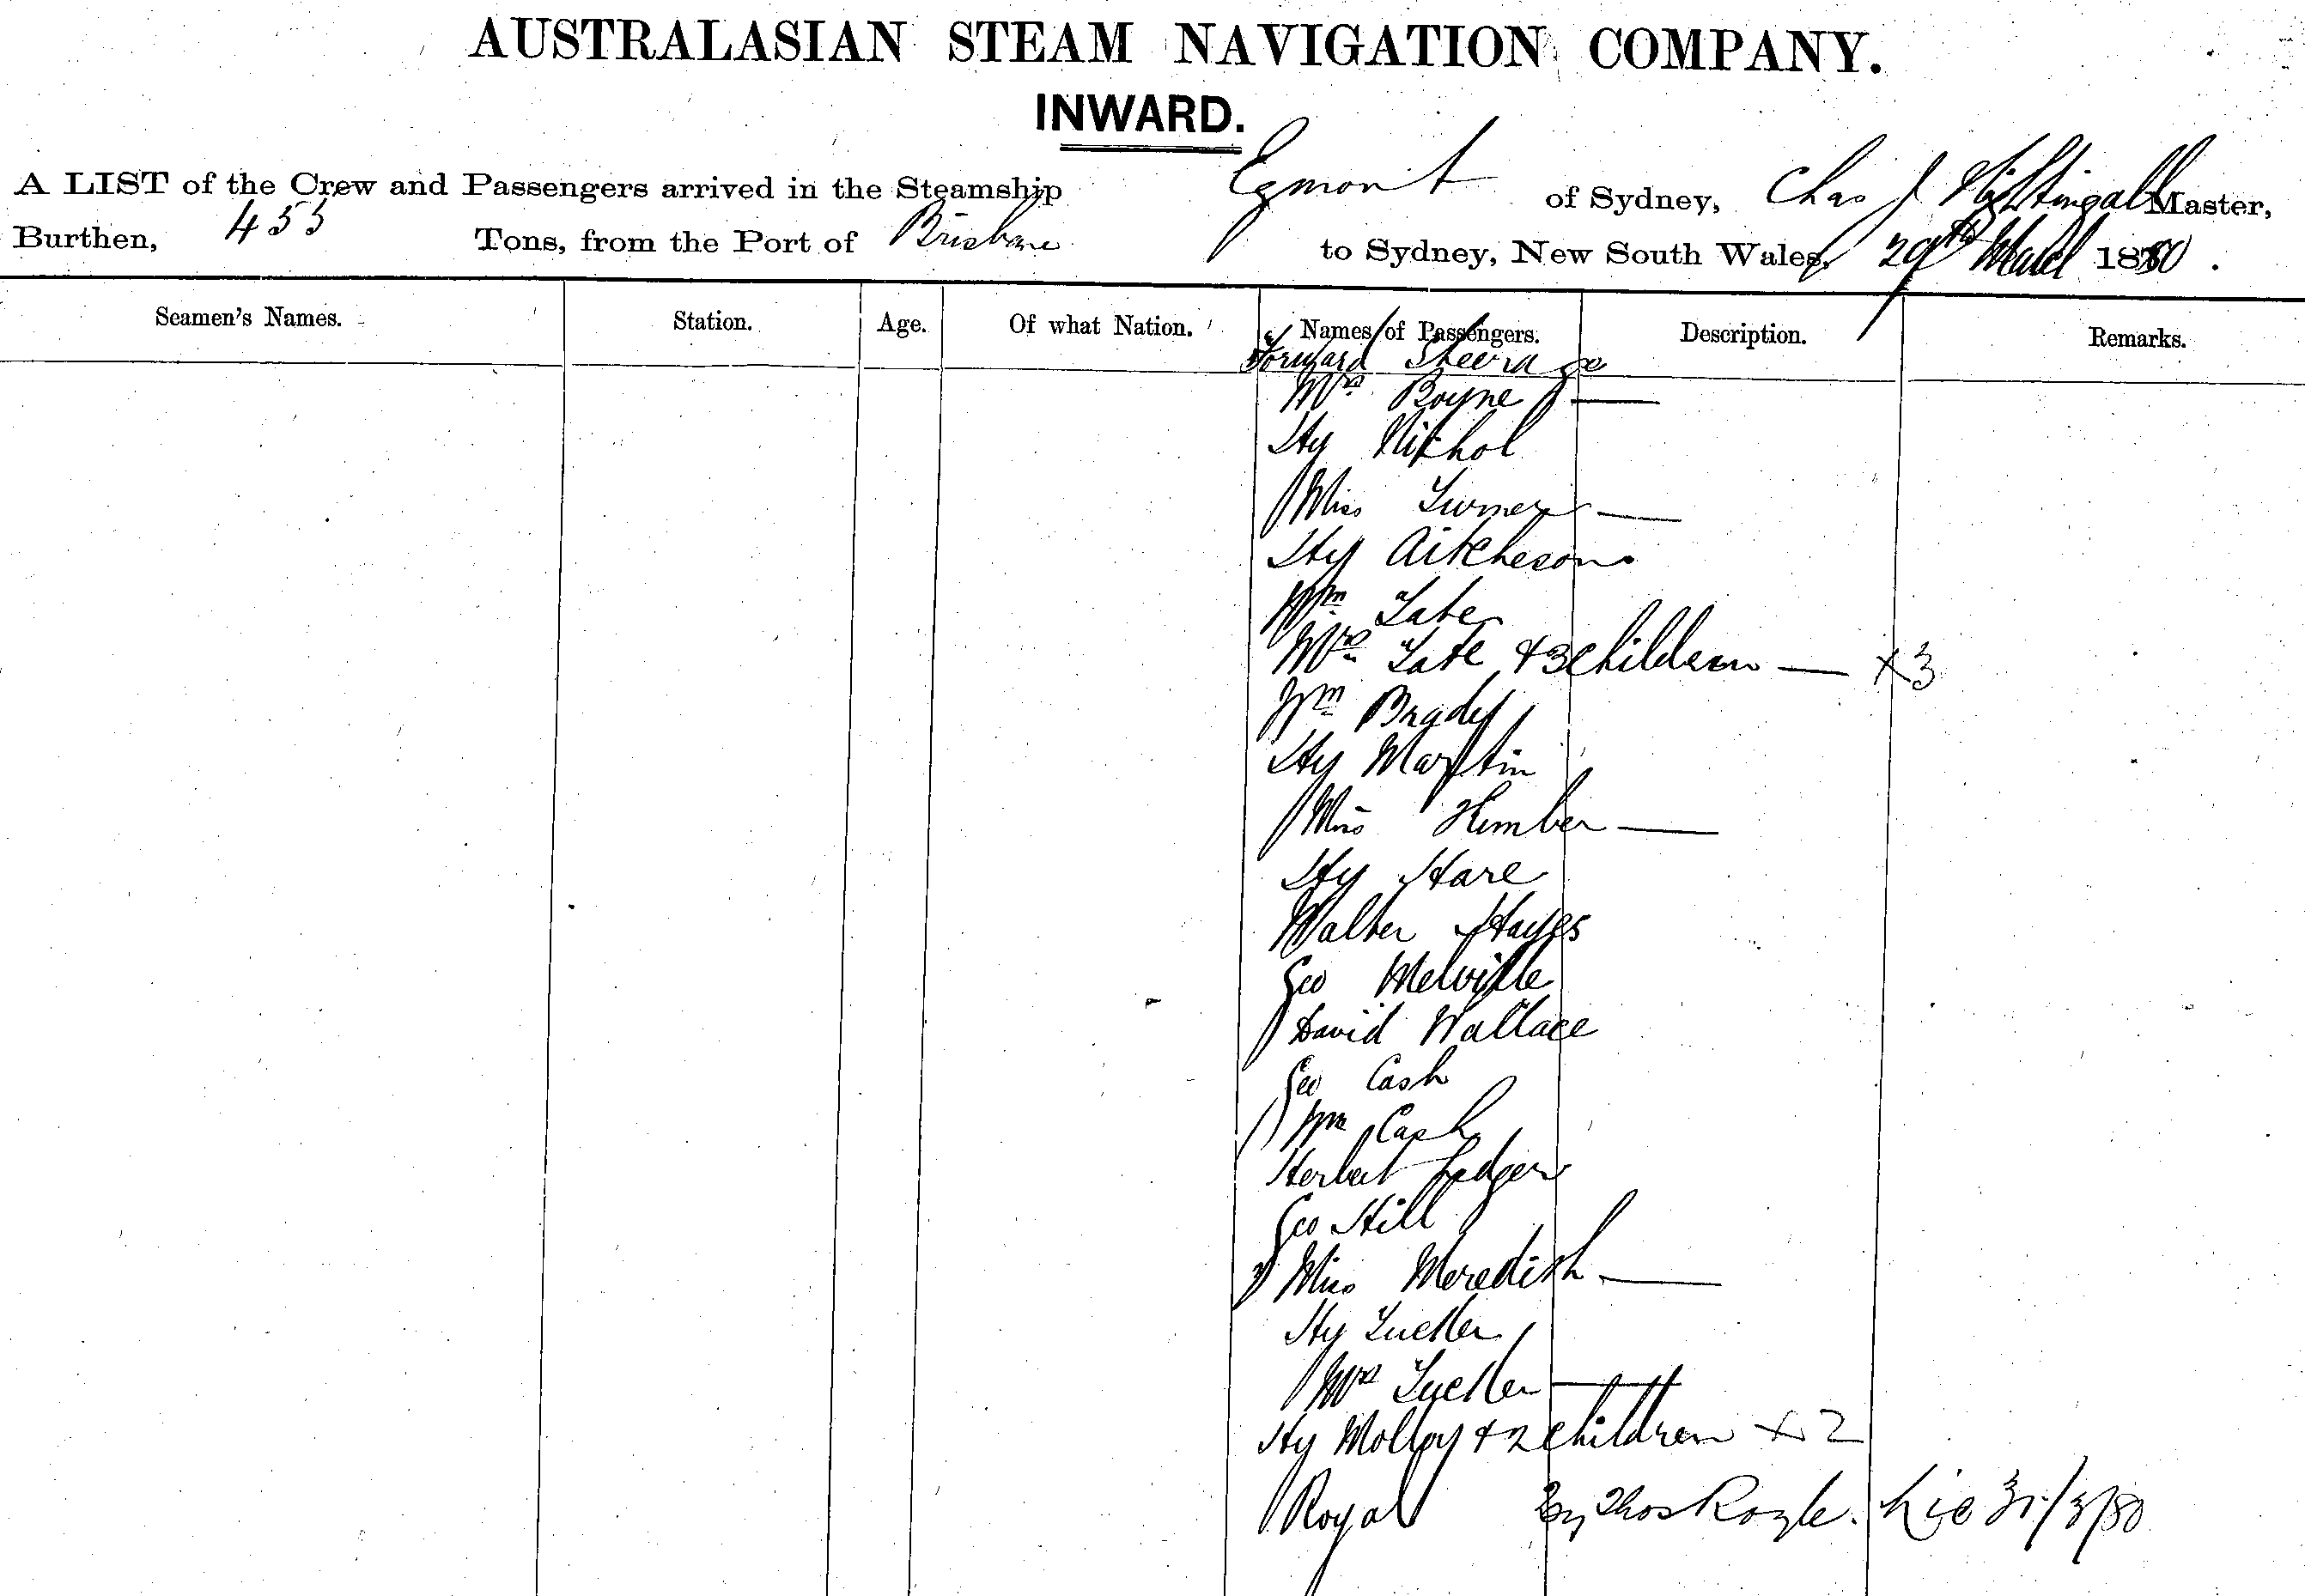 AUSTRALASIAN STEAM NAVIGATION COMPANY.
INWARD.
A LIST of the Crew and Passengers arrived in the Steamship Egmont of Sydney, Chas J Nightingall Master,
Burthen, 455 Tons, from the Port of Brisbane to Sydney, New South Wales, 29th March 1880.
Seamen's Names. Station. Age. Of what Nation. Names of Passengers. Description. Remarks.
Forward Steerage
Mrs Boyne —
Hy Nikhol
Miss Turner —
Hy Aitcheson
Wm Tate
Mrs Tate & 3 children — x3
Wm Brady
Hy Martin
Miss Himber —
Hy Hare
Walter Hayes
Geo Melville
David Wallace
Geo Cash
Wm Cash
Herbert Ledger
Geo Hill
Miss Meredith —
Hy Tucker
Mrs Tucker —
Hy Molloy & 2 children x 2
Royal By Thos Royle. 31/3/80